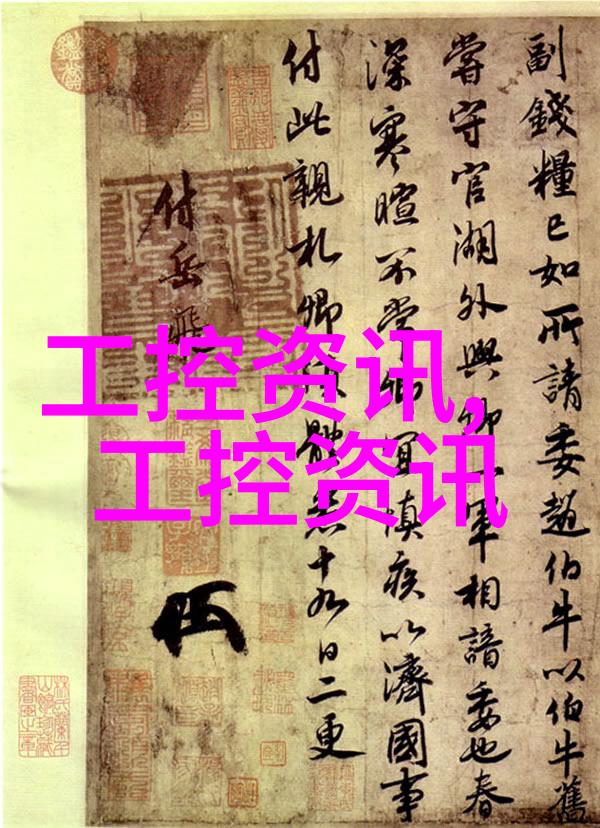 工控资讯,
工控资讯
副錢糧已如所請委趙伯牛以伯牛舊
嘗守官湖外與卿一軍相諳委也春
深寒暄不常卿宜慎疾以濟國事
付此親札卿體悉十九日二更
付岳飛